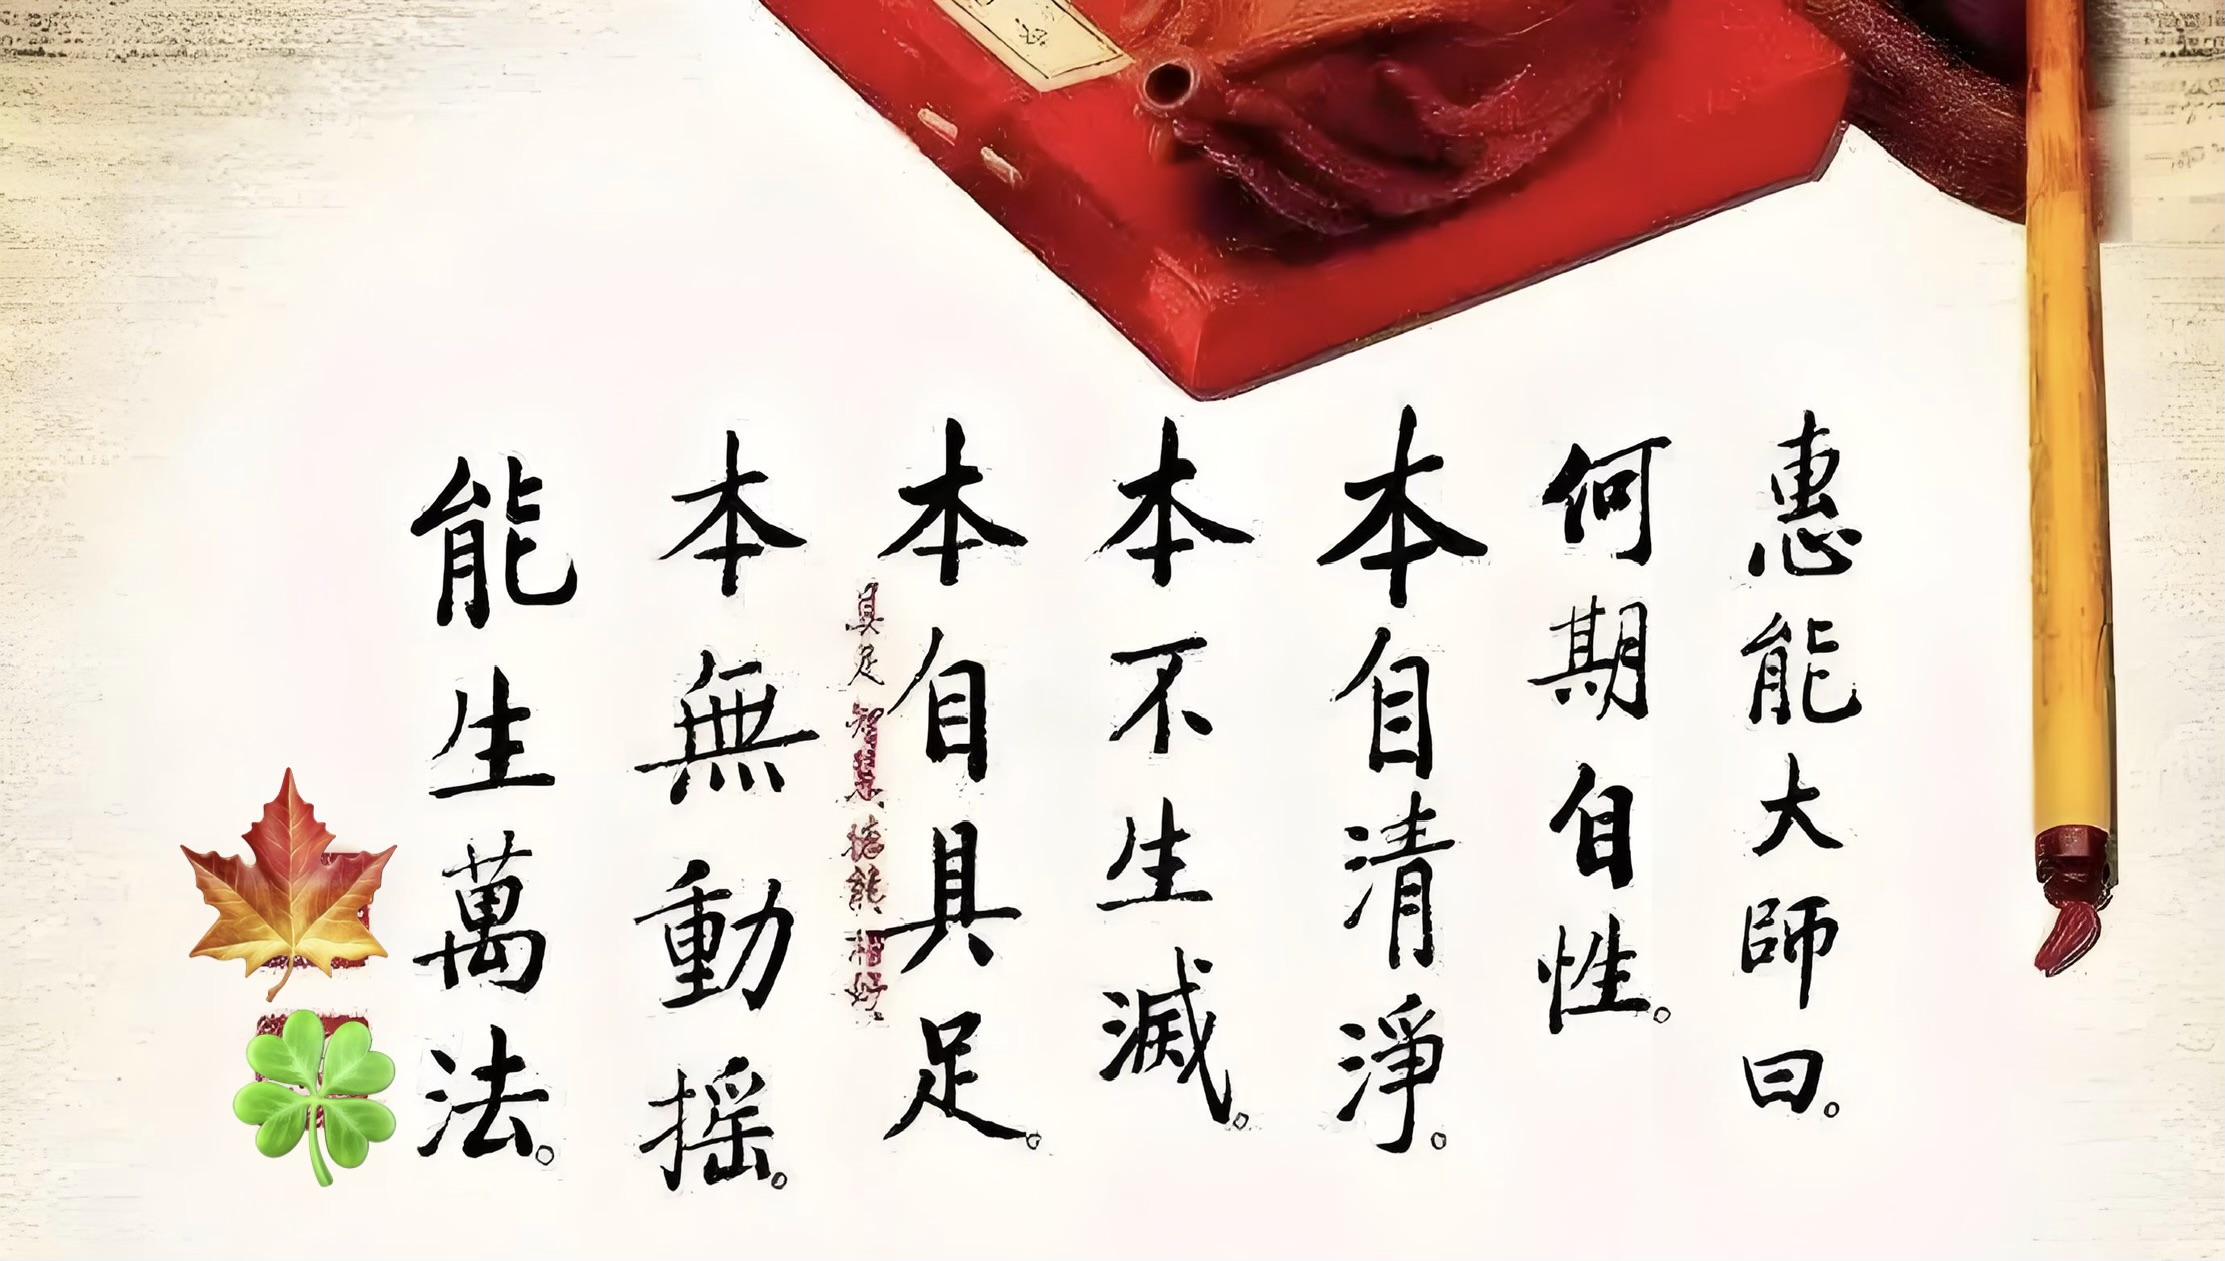 惠能大師曰。
何期自性。
本自清淨。
本不生滅。
本自具足。
具足智慧德能相好
本無動搖。
能生萬法。